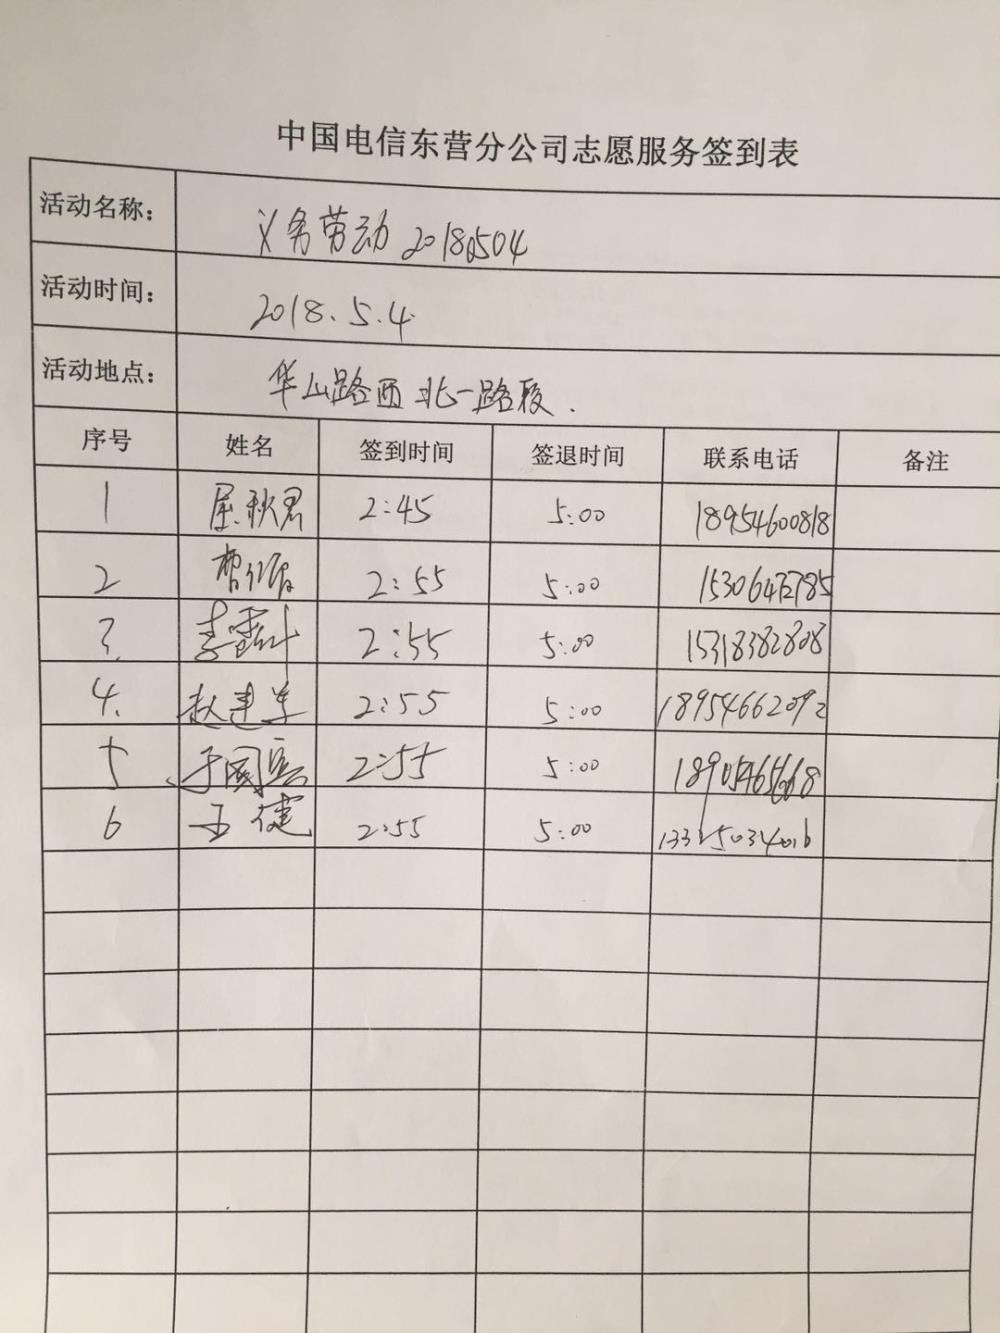 中国电信东营分公司志愿服务签到表
活动名称： 义务劳动 20180504
活动时间： 2018.5.4.
活动地点： 华山路西北一路段.
序号 姓名 签到时间 签退时间 联系电话 备注
1 屈秋君 2:45 5:00 18954600818
2 2:55 5:00
3. 李雪叶 2:55 5:00 15318382808
4. 赵建军 2:55 5:00 18954662092
5 于国宾 2:55 5:00
6 王健 2:55 5:00